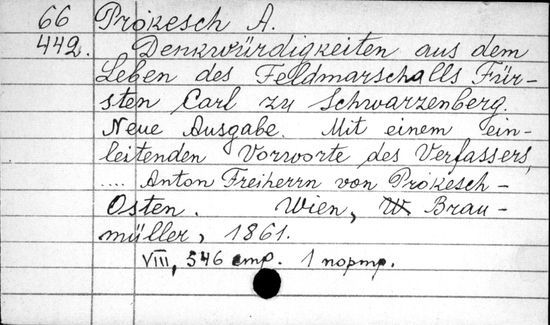 66 Prokesch A.
442. Denkwürdigkeiten aus dem
Leben des Feldmarschalls Für-
sten Carl zu Schwarzenberg.
Neue Ausgabe. Mit einem ein-
leitenden Vorworte des Verfassers,
.... Anton Freiherrn von Prokesch-
Osten. Wien, W Brau-
müller, 1861.
VIII, 346 cmp. 1 nopmp.